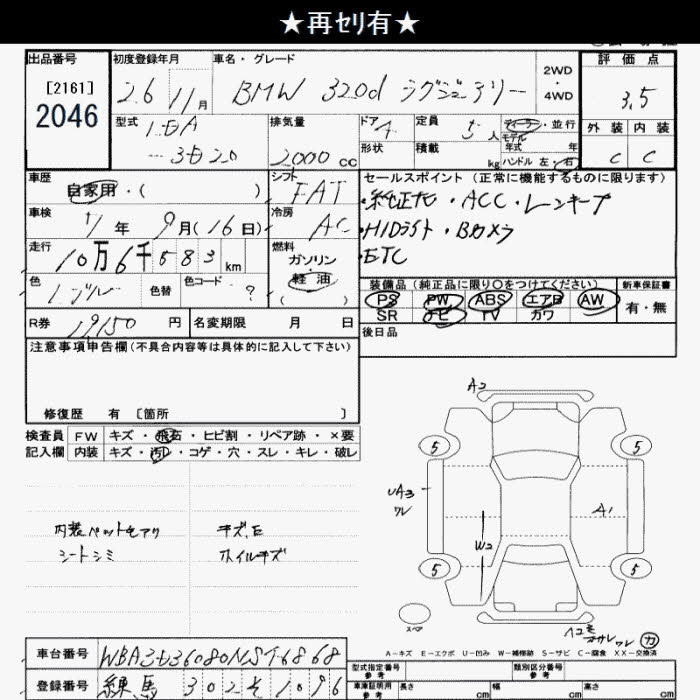 ★再セリ有★
出品番号 初度登録年月 車名・グレード 2WD・4WD 評価点
[2161]
2046
26 11月 BMW 320d ラグジュアリー 3.5
型式 LDA-3D20 排気量 2000 cc ドア 4 定員 5人 ディーラー・並行 外装 内装
形状 積載 kg モデル年式 年式 年 ハンドル 左・右 C C
車歴 自家用・( ) シフト FAT
セールスポイント (正常に機能するものに限ります)
・純正ナビ・ACC・レーンキープ
・HIDライト・Bカメラ
・ETC
車検 17年 9月(16日) 冷房 AC
走行 10万6千583km 燃料 ガソリン・軽油( )
色 色替 色コード ?
装備品 (純正品に限り○をつけてください) 新車保証書
PS PW ABS エアB AW 有・無
SR ナビ TV カワ
R券 19150円 名変期限 月 日
後日品
注意事項申告欄 (不具合内容等は具体的に記入して下さい)
修復歴 有 [箇所 ]
検査員記入欄 FW キズ・飛石・ヒビ割・リペア跡・×要
内装 キズ・汚レ・コゲ・穴・スレ・キレ・破レ
内装ペットモアリ キズ、E
シートシミ ホイルキズ
A2
5 5
UA3 ワレ A1
W2
5 5
スペア
ワレ カ
A-キズ E-エクボ U-凹み W-補修跡 S-サビ C-腐食 XX-交換済
車台番号 WBA3D36080NS76868
登録番号 練馬 302 そ 1096
型式指定番号 参考 類別区分番号 参考
車庫証明用 参考 長さ cm 幅 cm 高さ cm